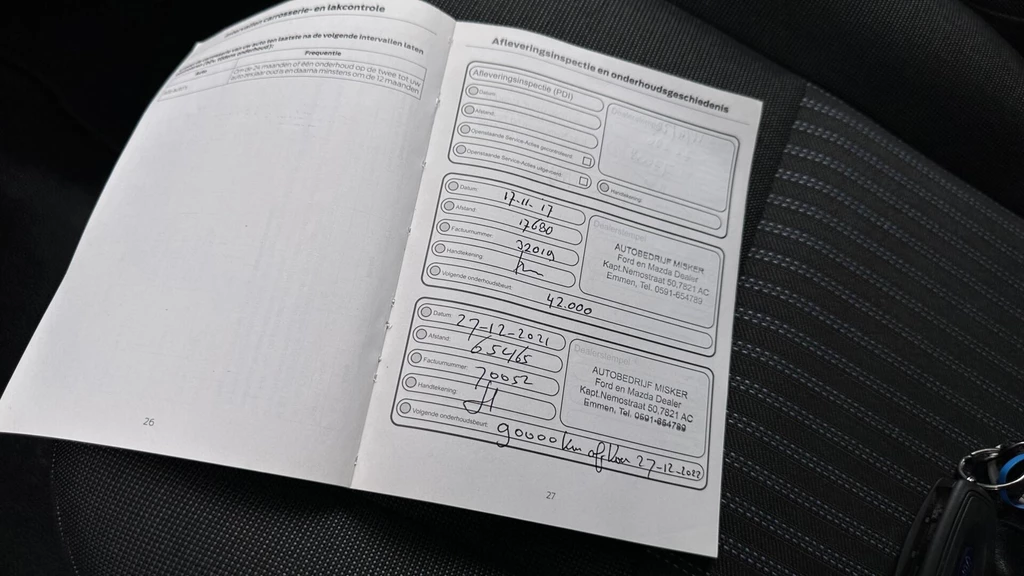 Intervallen carrosserie- en lakcontrole
ten laatste na de volgende intervallen laten
Frequentie
24 maanden of één onderhoud op de twee tot uw
auto zes jaar oud is en daarna minstens om de 12 maanden
26
Afleveringsinspectie en onderhoudsgeschiedenis
Afleveringsinspectie (PDI)
Datum:
Afstand:
Openstaande Service-Acties gecontroleerd:
Openstaande Service-Acties uitgevoerd:
Handtekening:
Datum: 17-11-17
Afstand: 17680
Factuurnummer: 32019
Handtekening:
Volgende onderhoudsbeurt: 42.000
Dealerstempel
AUTOBEDRIJF MISKER
Ford en Mazda Dealer
Kapt.Nemostraat 50,7821 AC
Emmen, Tel. 0591-654789
Datum: 27-12-2021
Afstand: 65465
Factuurnummer: 70052
Handtekening:
Volgende onderhoudsbeurt: 90000 km of voor 27-12-2022
Dealerstempel
AUTOBEDRIJF MISKER
Ford en Mazda Dealer
Kapt.Nemostraat 50,7821 AC
Emmen, Tel. 0591-654789
27